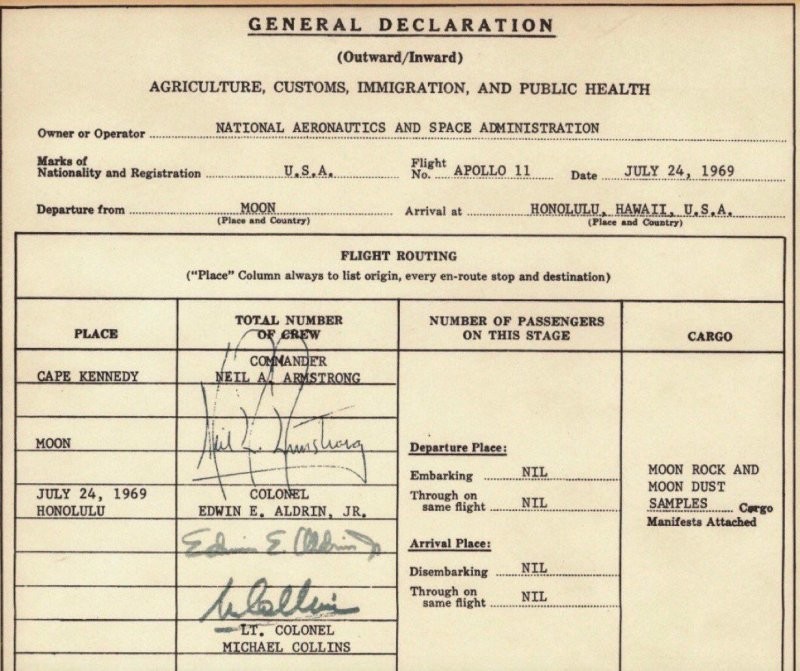 GENERAL DECLARATION
(Outward/Inward)
AGRICULTURE, CUSTOMS, IMMIGRATION, AND PUBLIC HEALTH
Owner or Operator NATIONAL AERONAUTICS AND SPACE ADMINISTRATION
Marks of
Nationality and Registration U.S.A. Flight No. APOLLO 11 Date JULY 24, 1969
Departure from MOON Arrival at HONOLULU, HAWAII, U.S.A.
(Place and Country) (Place and Country)
FLIGHT ROUTING
("Place" Column always to list origin, every en-route stop and destination)
PLACE
TOTAL NUMBER
OF CREW
NUMBER OF PASSENGERS
ON THIS STAGE
CARGO
CAPE KENNEDY
MOON
JULY 24, 1969
HONOLULU
COMMANDER
NEIL A. ARMSTRONG
Neil A. Armstrong
COLONEL
EDWIN E. ALDRIN, JR.
Edwin E. Aldrin Jr
M Collins
LT. COLONEL
MICHAEL COLLINS
Departure Place:
Embarking NIL
Through on
same flight NIL
Arrival Place:
Disembarking NIL
Through on
same flight NIL
MOON ROCK AND
MOON DUST
SAMPLES Cargo
Manifests Attached